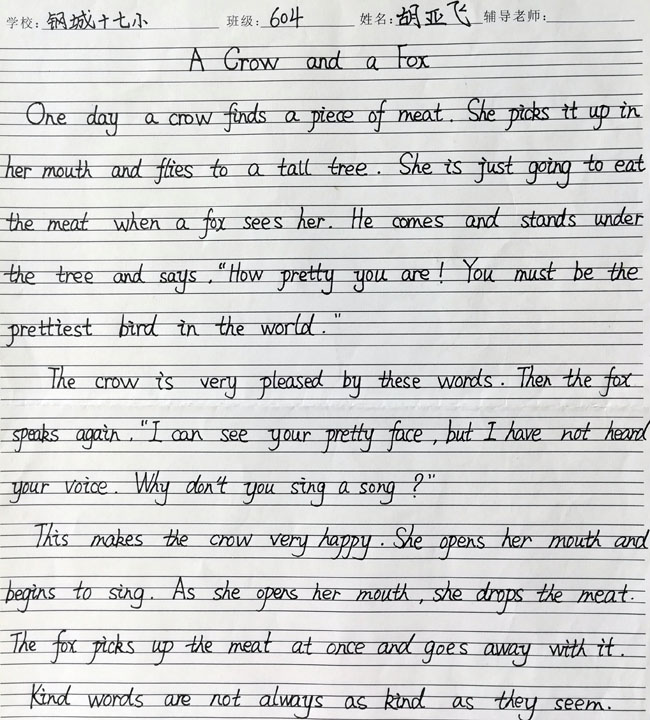 学校: 钢城十七小 班级: 604 姓名: 胡亚飞 辅导老师:
A Crow and a Fox
One day a crow finds a piece of meat. She picks it up in
her mouth and flies to a tall tree. She is just going to eat
the meat when a fox sees her. He comes and stands under
the tree and says, "How pretty you are! You must be the
prettiest bird in the world."
The crow is very pleased by these words. Then the fox
speaks again, "I can see your pretty face, but I have not heard
your voice. Why don't you sing a song ?"
This makes the crow very happy. She opens her mouth and
begins to sing. As she opens her mouth, she drops the meat.
The fox picks up the meat at once and goes away with it.
Kind words are not always as kind as they seem.